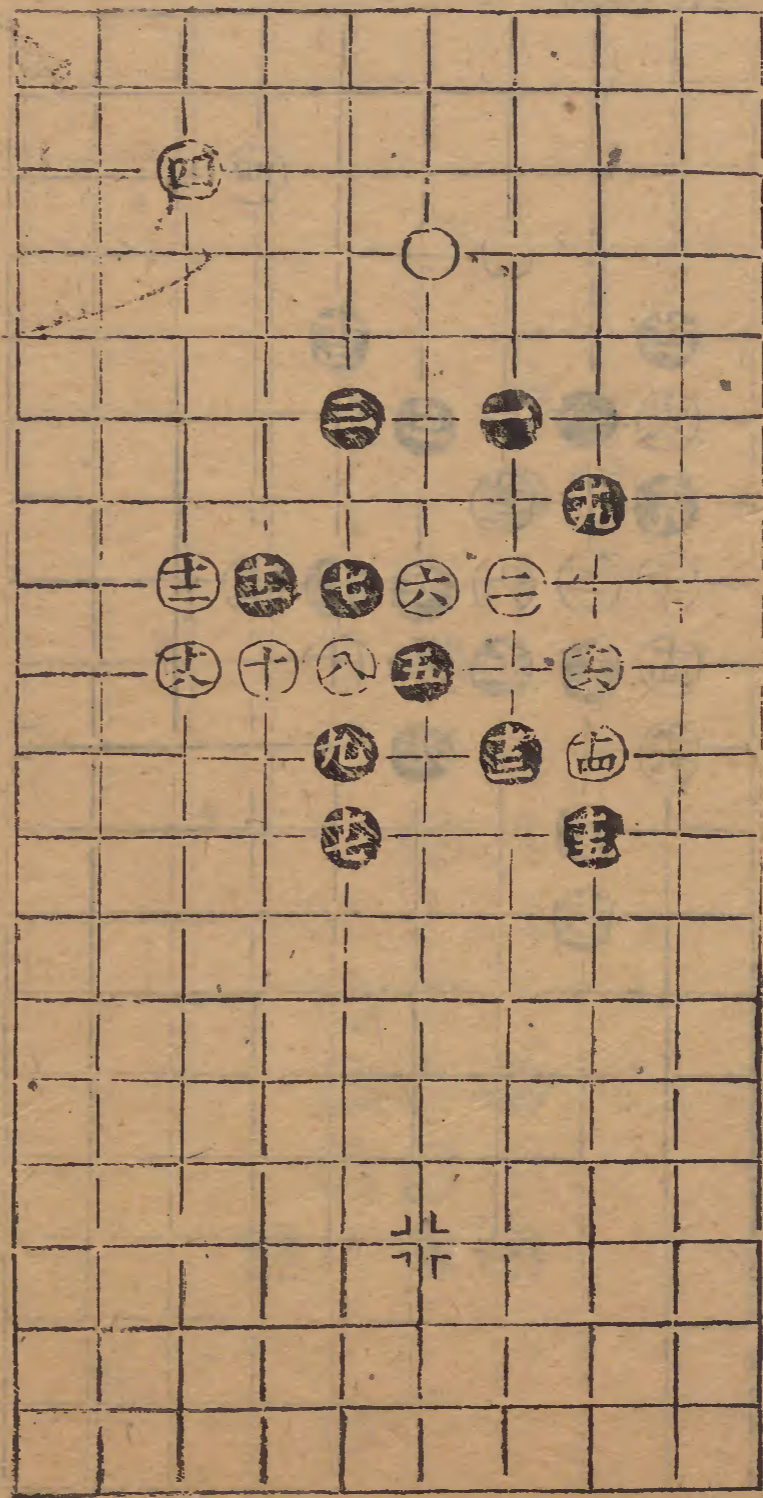 四
三 一
十九
十二 十一 七 六 二
十八 十 八 五 十六
九 十三 十四
十七 十五